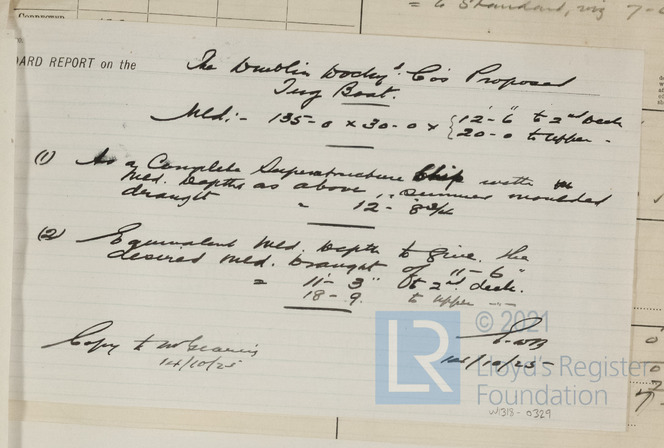 = to Standard, viz 7-
OARD REPORT on the
The Dublin Dockyd. Co's Proposed
Tug Boat.
Mld:- 135-0 x 30-0 x { 12'-6" to 2nd Deck
20-0 to Upper -
(1) As a Complete Superstructure Ship with
Mld. Depths as above, Summer moulded
draught = 12-
(2) Equivalent Mld. Depth to give the
desired Mld. Draught of 11-6"
= 11-3" to 2nd deck.
18-9. to upper ---
Copy to
14/10/25
14/10/25
© 2021
LR
Lloyd's Register
Foundation
W1318-0329